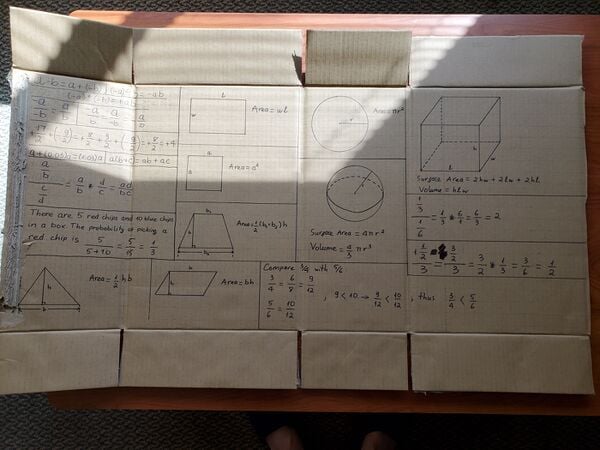 a-b=a+(-b)
(-a)(-b)=+ab
-ab
a+(0.05)a=(1.05)a
a(b+c)=ab+ac
a/b / c/d = a/b * d/c = ad/bc
There are 5 red chips and 10 blue chips
in a box. The probability of picking a
red chip is 5/(5+10) = 5/15 = 1/3
h
b
Area = 1/2 hb
l
w
Area = wl
a
a
Area = a²
b₁
h
b₂
Area = 1/2 (b₁+b₂)h
h
b
Area = bh
r
Area = πr²
r
Surface Area = 4πr²
Volume = 4/3 πr³
Compare 3/4 with 5/6
3/4 = 6/8 = 9/12
5/6 = 10/12
, 9 < 10 → 9/12 < 10/12 , thus 3/4 < 5/6
h
l
w
Surface Area = 2hw + 2lw + 2hl
Volume = hlw
1/3 / 1/6 = 1/3 * 6/1 = 6/3 = 2
1 1/2 / 3 = 3/2 / 3 = 3/2 * 1/3 = 3/6 = 1/2